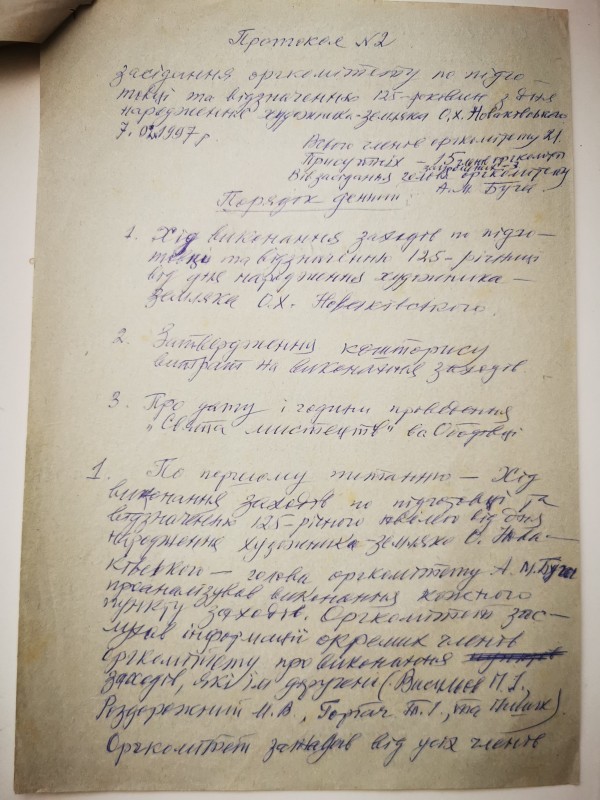 Протокол №2
засідання оргкомітету по підго-
товці та відзначенню 125-роковини з дня
народження художника-земляка О.Х. Новаківського
7.02.1997 р.
Всього членів оргкомітету 21.
Присутніх – 15 членів оргкомітету
Вів засідання голова оргкомітету
А.М. Буга.
Порядок денний:
1. Хід виконання заходів по підго-
товці та відзначенню 125-річниці
від дня народження художника-
земляка О.Х. Новаківського.
2. Затвердження кошторису
витрат на виконання заходів
3. Про дату і години проведення
"Свята мистецтв" в с. Ободівці
1. По першому питанню – Хід
виконання заходів по підготовці та
відзначенню 125-річного ювілею від дня
народження художника-земляка О. Нова-
ківського – голова оргкомітету А.М. Буга
проаналізував виконання кожного
пункту заходів. Оргкомітет зас-
лухав інформації окремих членів
оргкомітету про виконання
заходів, які їм доручені (Васильєв П.І.,
Роздорожний М.В., Гортач Т.І., та
Оргкомітет зажадав від усіх членів